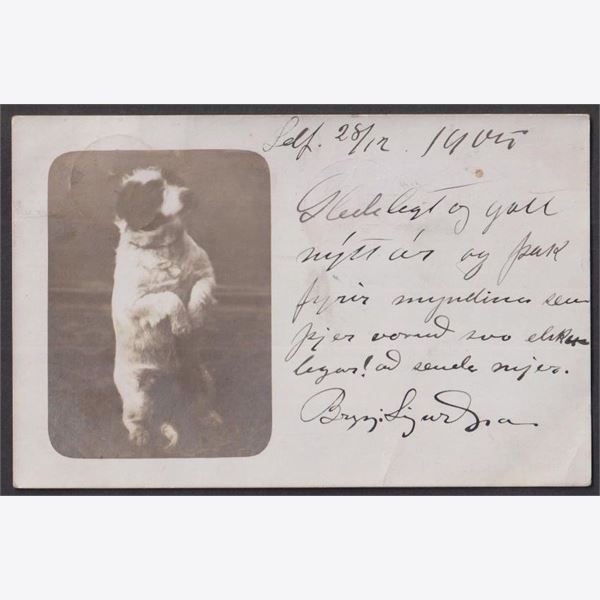 Self. 28/12. 1905
Gledelegt og gott
nýtt ár og þak
fyrir myndina sem
þjer voruð svo elsku
legar! að senda mjer.